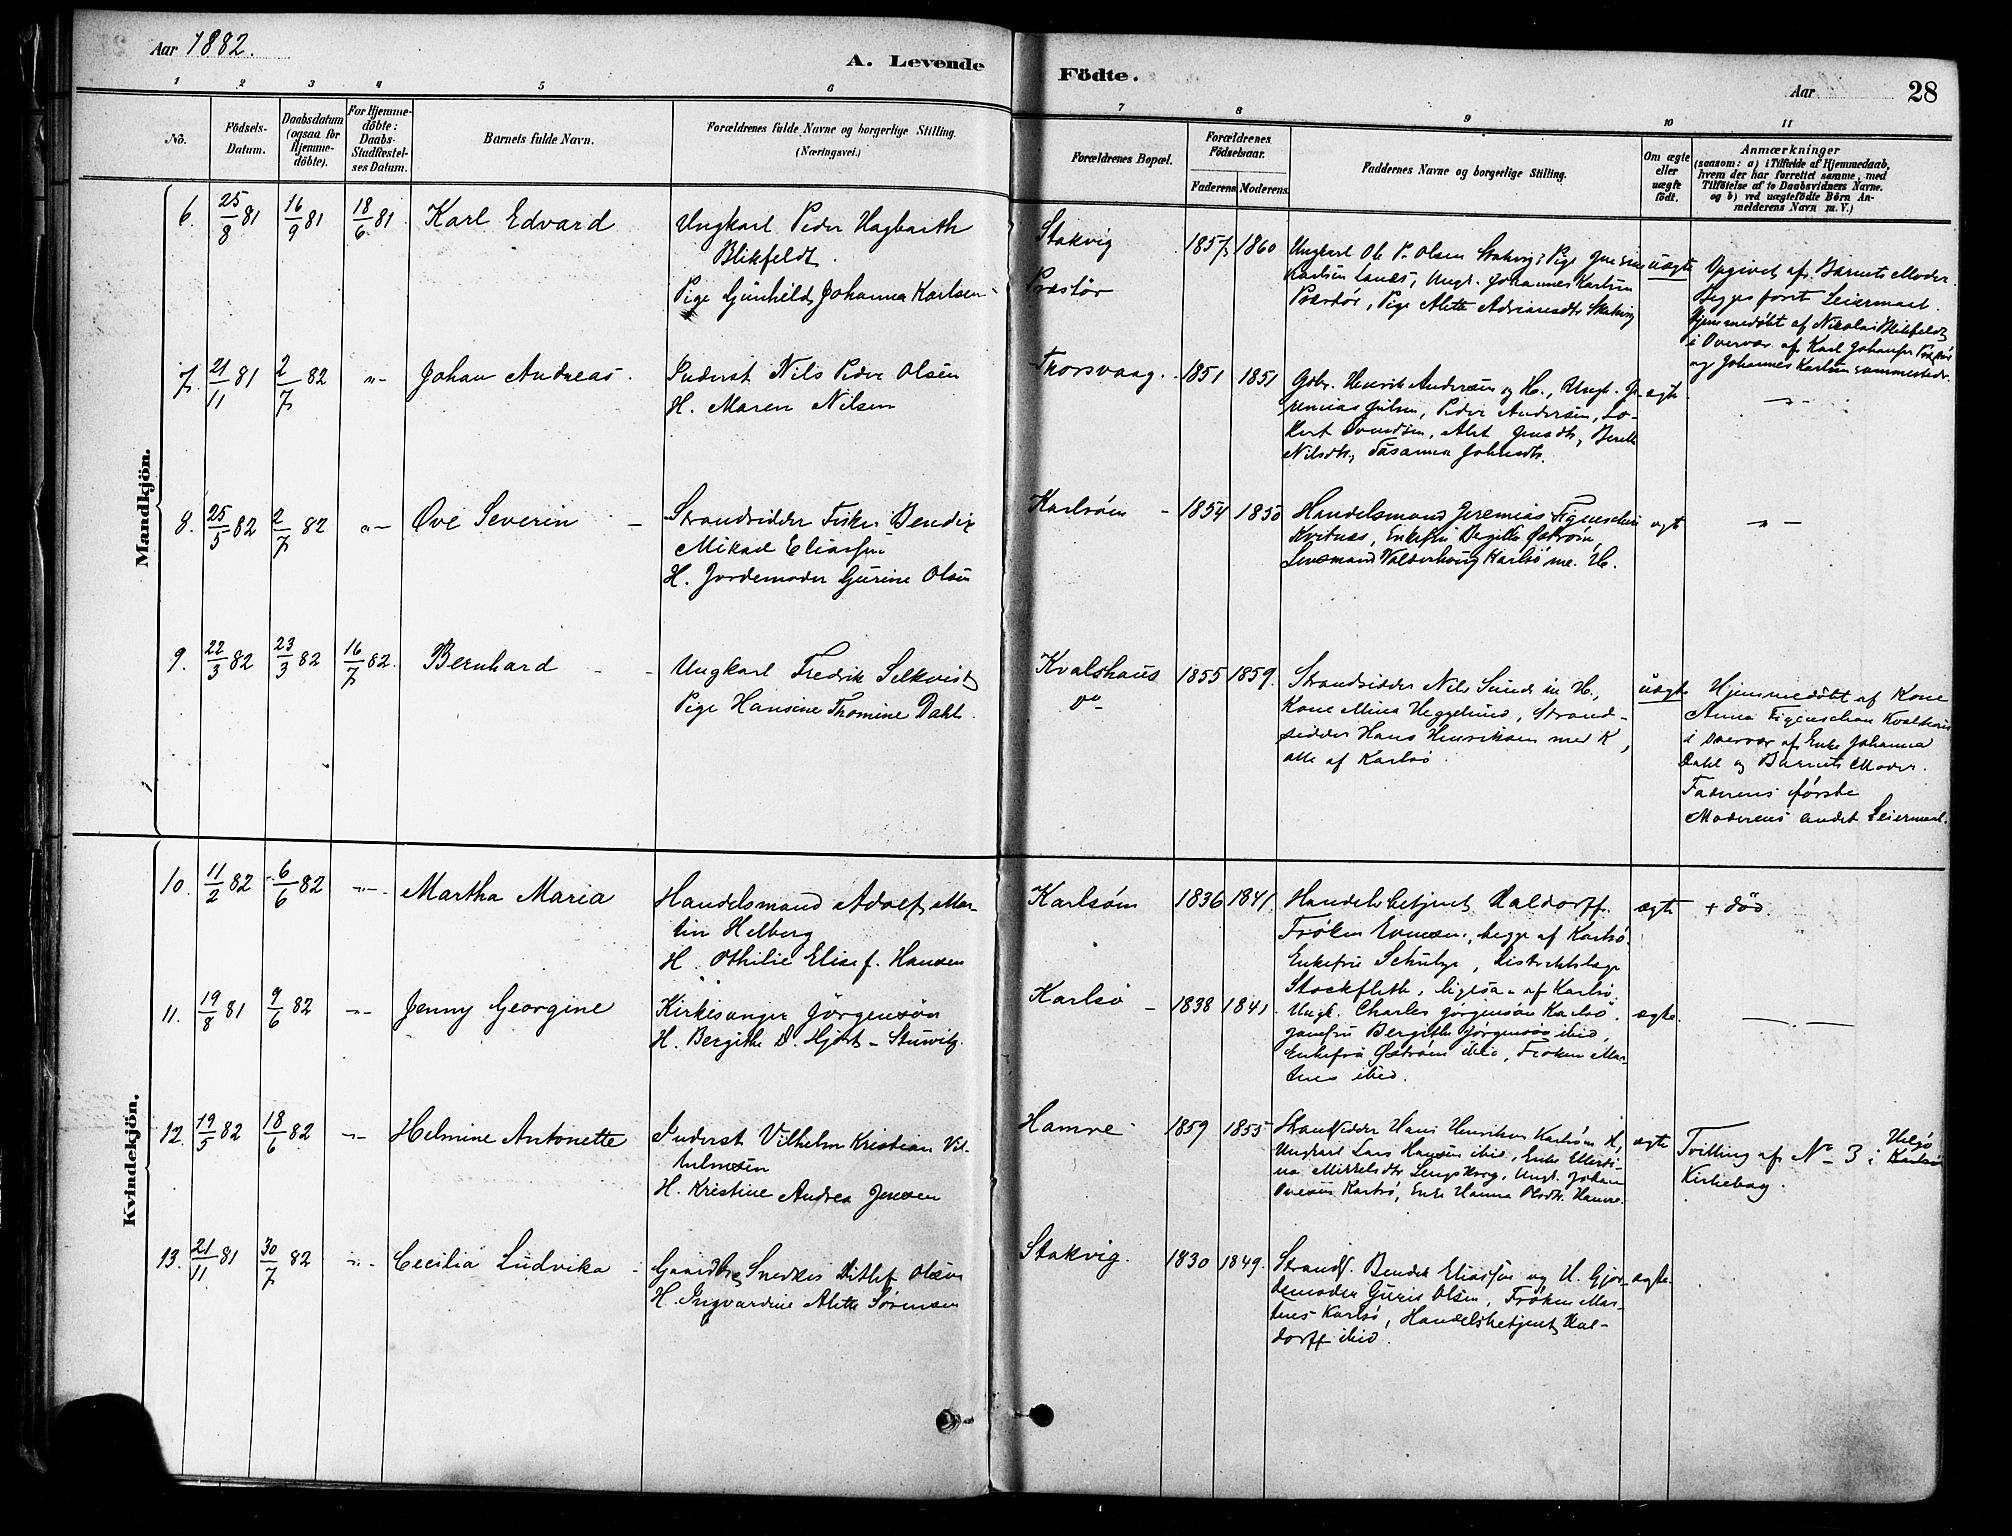 Aar 1882.
A. Levende Födte.
Aar 28
1 2 3 4 5 6 7 8 9 10 11
No.
Födsels-Datum.
Daabsdatum (ogsaa for Hjemme-döbte).
For Hjemme-döbte: Daabs-Stadfæstel-ses Datum.
Barnets fulde Navn.
Forældrenes fulde Navne og borgerlige Stilling.
(Næringsvei.)
Forældrenes Bopæl.
Forældrenes Födselsaar.
Faderens Moderens
Faddernes Navne og borgerlige Stilling.
Om ægte eller uægte födt.
Anmærkninger
(saasom: a) i Tilfælde af Hjemmedaab, hvem der har forrettet samme, med Tilföielse af to Daabsvidners Navne. og b) ved uægtefödte Börn An-melderens Navn m. V.)
Mandkjön.
6. 25/8 81 16/9 81 18/6 81 Karl Edvard
Ungkarl Peder Hagbarth
Blikfeldt.
Pige Gunhild Johanna Karlsen
Stakvig
Præstør
1857 1860
Ungkarl Ole P. Olsen Stakvig, Pige
Karlsen Lanes, Ungk. Johannes Karlsen
Præstør, Pige Alette Adriansdtr Stakvig
uægte
Opgivet af Barnets Moder.
Begges først Leiermaal.
Hjemmedøbt af Nikolai Blikfeldt
i Overvær af Karl Johansen Præstør
og Johannes Karlsen sammesteds.
7. 21/11 81 2/7 82 -"- Johan Andreas.
Inderst Nils Peder Olsen
H. Maren Nilsen
Thorsvaag. 1851 1851
Gbr. Henrik Andersen og H., Ungk. Je-
remias Julsen, Peder Andersen, Lo-
rents Svendsen, Alet Jensdtr, Berit
Nilsdtr, Susanna Johnsdtr.
ægte -"-
8. 25/5 82 2/7 82 -"- Ove Severin
Strandsidder Fisker Bendix
Mikael Eliassen
H. Jordemoder Gurine Olsen
Karlsøen 1854 1850
Handelsmand Jeremias Figenschau
Kvitnæs, Enkefru Bergithe Østrøm,
Lensmand Valderhaug Karlsø me. H.
ægte -"-
9. 22/3 82 23/3 82 16/7 82. Bernhard
Ungkarl Fredrik Selkvist
Pige Hansine Thomine Dahl.
Kvalshaus
do
1855 1859.
Strandsidder Nils Sund m H,
Kone Mina Heggelund, Strand-
sidder Hans Henriksen med K,
alle af Karlsø.
uægte
Hjemmedøbt af Kone
Anna Figenschau Kvalshaus
i overvær af Enke Johanna
Dahl og Barnets Moder.
Faderens første
Moderens andet Leiermaal.
Kvindekjön.
10. 11/2 82 6/6 82 -"- Martha Maria
Handelsmand Adolf Mar-
tin Helberg
H. Othilie Elise f. Hansen
Karlsøen 1836 1841
Handelsbetjent Kaldorff.
Frøken Evensen, begge af Karlsø.
Enkefru Schulze, Distriktslæge
Stockfleth, ligesaa af Karlsø.
ægte + død.
11. 19/8 81 9/6 82 -"- Jenny Georgine
Kirkesanger Jørgensøn
H. Bergithe D. Hjort - Stuwitz.
Karlsø - 1838 1841
Ungk. Charles Jørgensøn Karlsø,
Jomfru Bergithe Jørgensøn ibid,
Enkefru Østrøm ibid, Frøken Mar-
tens ibid.
ægte.
12. 19/5 82 18/6 82 -"- Helmine Antonette
Inderst Vilhelm Kristian Vil-
helmsen
H. Kristine Andrea Jensen
Hamre 1859 1855
Strandsidder Hans Henriksen Karlsøen H,
Ungkarl Lars Hansen ibid, Enke Ellerti-
na Mikkelsdtr Lengskog, Ungk. Johan
Ovesen Karlsø, Enke Hanna Olsdtr Hamre.
ægte
Tvilling af No 3 i Helgø Karlsø
Kirkebog.
13. 21/11 81 30/7 82 -"- Cecilia Ludvika
Gaardbr. Snedker Ditlef Olsen
H. Ingvardine Alette Sørensen
Stakvig. 1830 1849.
Strands. Bendik Eliassen og H. Gjor-
demoder Gurie Olsen, Frøken Mar-
tens Karlsø, Handelsbetjent Kal-
dorff ibid.
ægte.